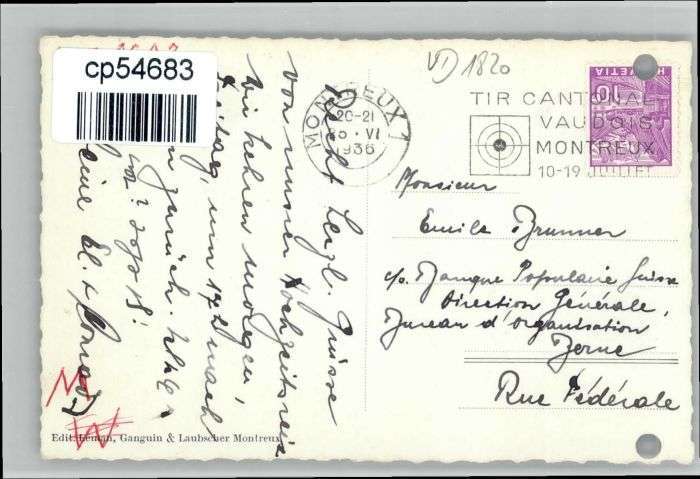 cp54683
VI) 1820
HELVETIA
10
MONTREUX 1
20-21
VI
1936
TIR CANTONAL
VAUDOIS
MONTREUX
10-19 JUILLET
Monsieur
Emile Brunner
c/o Banque Populaire Suisse
Direction Générale,
Bureau d'organisation
Berne
Rue Fédérale
Recht herzl. Grüsse
von unserer Hochzeitsreise
Wir kehren morgen,
Freitag, um 17
zurück.
N
W
Edit. Léman, Ganguin & Laubscher Montreux